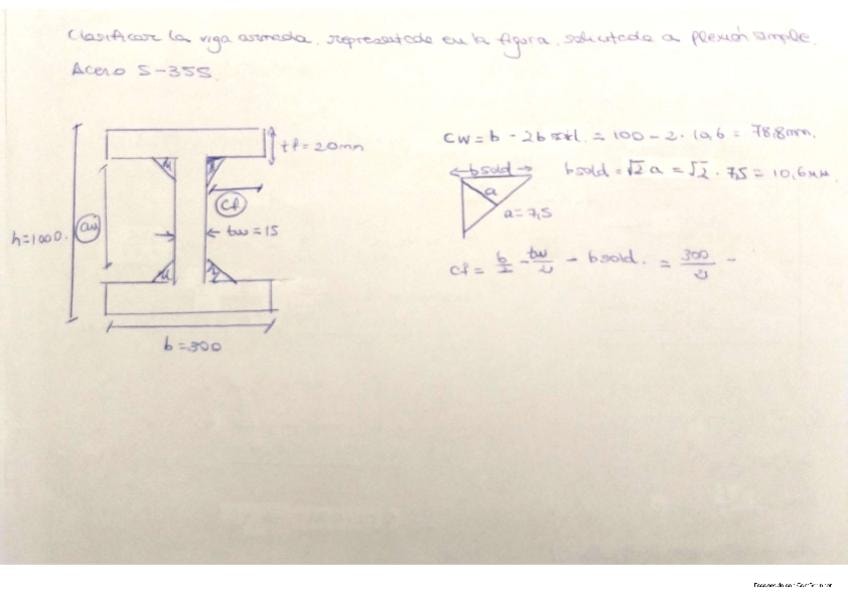 Clasificar la viga armada, representada en la figura, solicitada a flexión simple.
Acero S-355
tf = 20mm
Cf
tw = 15
cw
h=1000.
b=300
Cw = b - 2b sold. = 100 - 2 · 10,6 = 78.8mm.
bsold
a
a=7,5
bsold = √2 a = √2 · 7,5 = 10,6mm.
Cf = b/2 - tw/2 - bsold. = 300/2 -